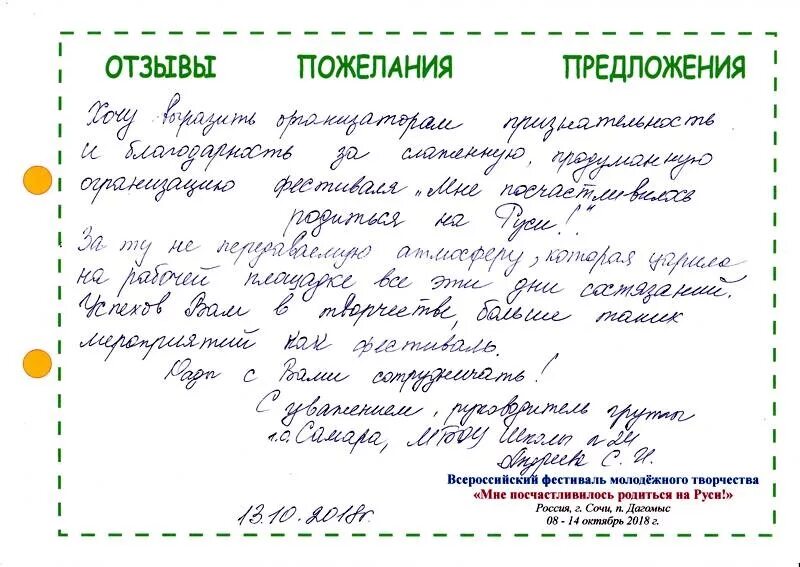 ОТЗЫВЫ ПОЖЕЛАНИЯ ПРЕДЛОЖЕНИЯ
Хочу выразить организаторам признательность
и благодарность за слаженную, продуманную
организацию фестиваля „Мне посчастливилось
родиться на Руси!"
За ту не передаваемую атмосферу, которая царила
на рабочей площадке все эти дни состязаний.
Успехов Вам в творчестве, больше таких
мероприятий как фестиваль.
Рады с Вами сотрудничать!
С уважением, руководитель группы
г.о. Самара, МБОУ Школы №24
С. И.
Всероссийский фестиваль молодёжного творчества
«Мне посчастливилось родиться на Руси!»
Россия, г. Сочи, п. Дагомыс
08 - 14 октябрь 2018 г.
13.10.2018г.